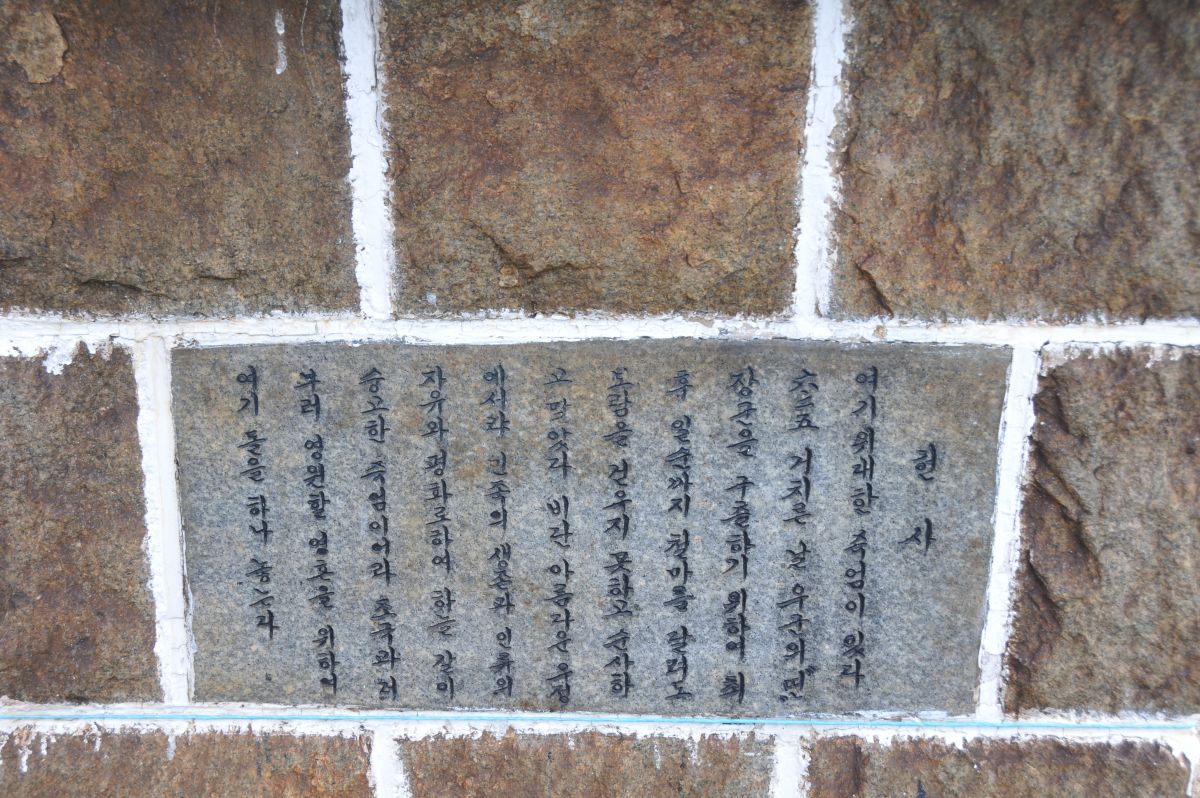 헌사
여기 위대한 죽엄이 잇다
六二五 거치른 날 우군의 "띤"
장군을 구출하기 위하여 최
후 일순까지 철마를 달려도
보람을 걷우지 못하고 순사하
고 말앗다 비단 아름다운 우정
에서랴 민족의 생존과 인류의
자유와 평화로하여 한늘 같이
숭고한 죽엄이어라 조국과 더
부러 영원할 영혼을 위하여
여기 돌을 하나 놓노라